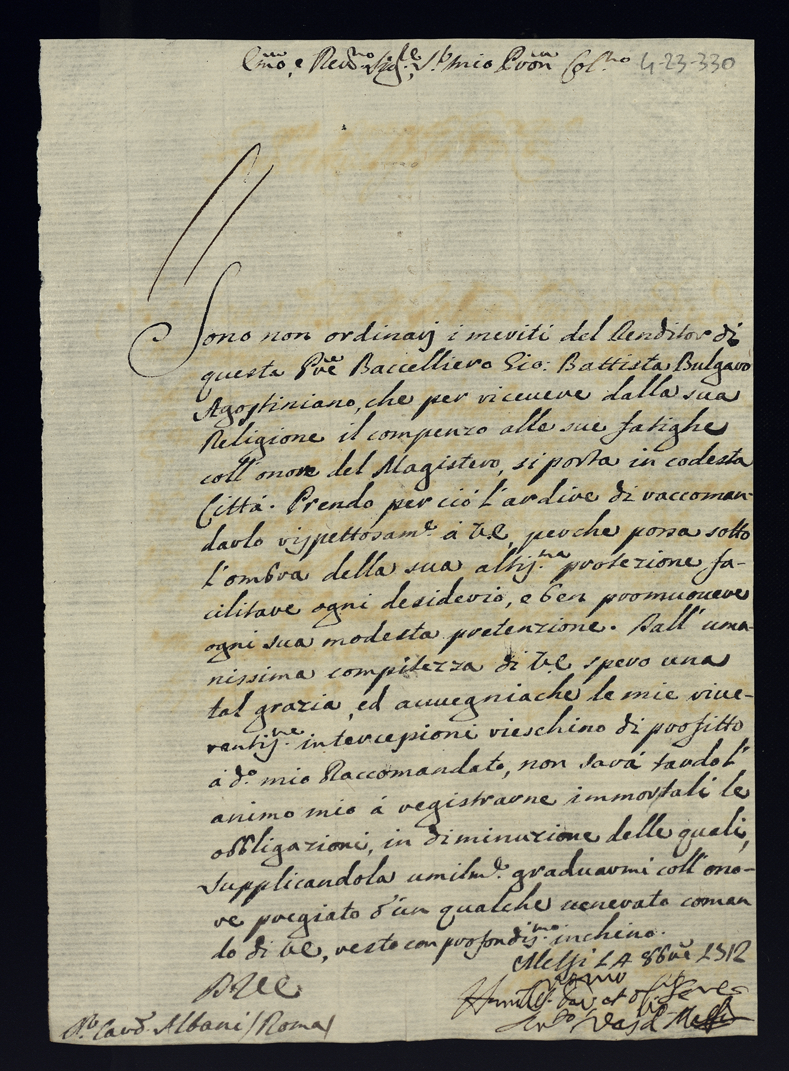 Em̃o, e Reu.mo Sig.re, S.r mio Pr̃on Col.mo 4-23-330
Sono non ordinarj i meriti del Renditor di
questa Pr̃e Baccelliero Gio: Battista Bulgarò
Agostiniano, che per riceuere dalla sua
Religione il compenzo alle sue fatighe
coll'onore del Magistero, si porta in codesta
Città. Prendo perciò l'ardire di raccoman-
darlo rispettosam.e à V.E., perche possa sotto
l'ombra della sua altis.ma protezione fa-
cilitare ogni desiderio, e ben promuouere
ogni sua modesta pretenzione. Dall'uma-
nissima compitezza di V.E. spero una
tal grazia, ed auuegniache le mie riue-
rentis.me intercepioni rieschino di profitto
à d.o mio Raccomandato, non sarà tardo l'
animo mio à registrarne immortali le
obbligazioni, in diminuzione delle quali,
supplicandola umilm.e graduarmi coll'ono-
re pregiato d'un qualche uenerato coman
do di V.E., resto con profondis.mo inchino.
Mess.a 8bre 1712
D.V.E.
Humil.mo et
S.r Card. Albani / Roma /